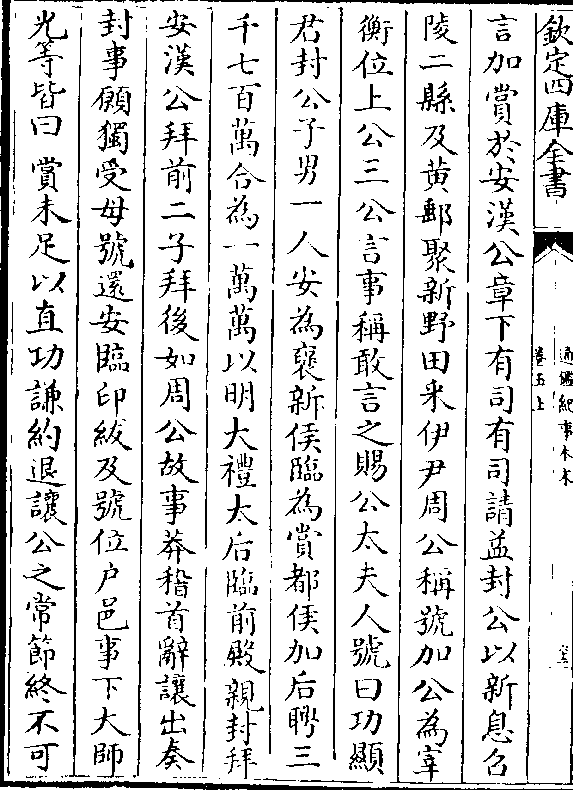 欽定四庫全書
通鑑紀事本末
卷五上
言加賞於安漢公章下有司有司請益封公以新息召
陵二縣及黄郵聚新野田采伊尹周公稱號加公為宰
衡位上公三公言事稱敢言之賜公太夫人號曰功顯
君封公子男二人安為襃新侯臨為賞都侯加后聘三
千七百萬合為一萬萬以明大禮太后臨前殿親封拜
安漢公拜前二子拜後如周公故事莽稽首辭讓出奏
封事願獨受母號還安臨印紱及號位户邑事下大師
光等皆曰賞未足以直功謙約退讓公之常節終不可